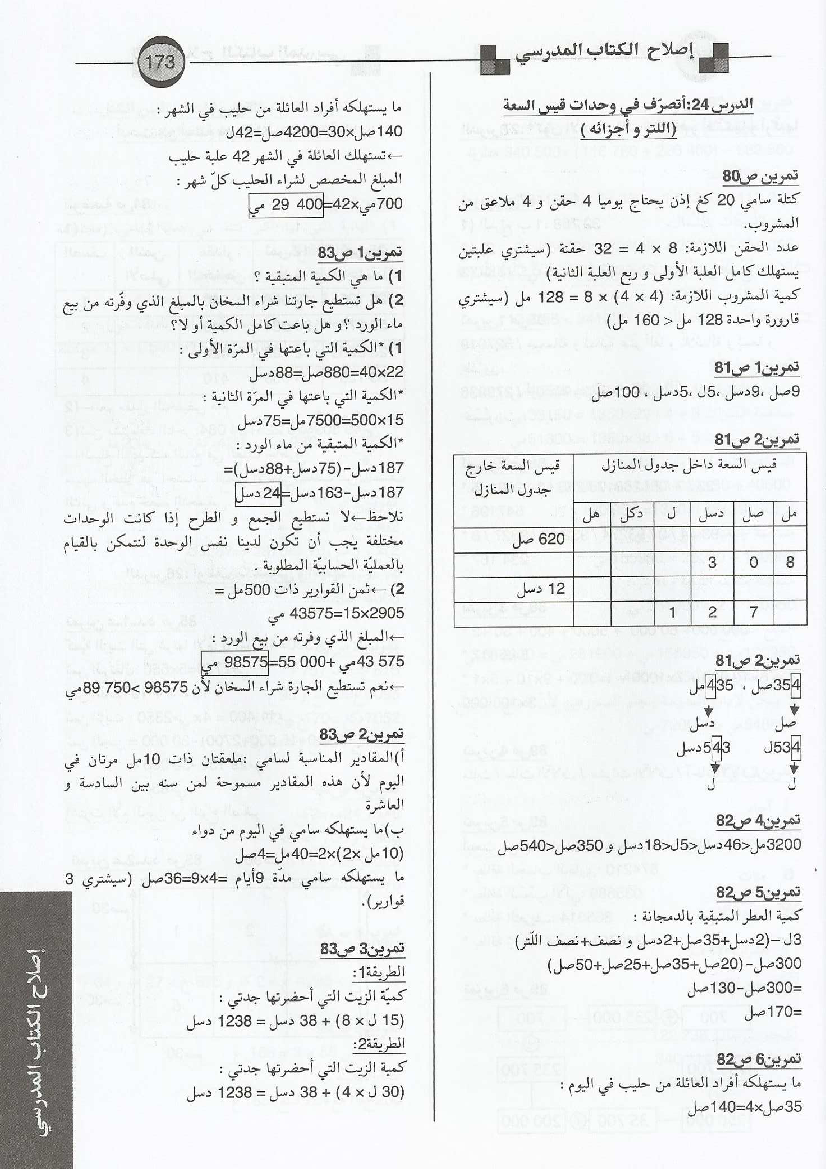 إصلاح الكتاب المدرسي
173
الدرس 24: أتصرّف في وحدات قيس السعة
(اللتر و أجزائه )
تمرين ص80
كتلة سامي 20 كغ إذن يحتاج يوميا 4 حقن و 4 ملاعق من
المشروب.
عدد الحقن اللازمة: 8 x 4 = 32 حقنة (سيشتري علبتين
يستهلك كامل العلبة الأولى و ربع العلبة الثانية)
كمية المشروب اللازمة: (4 x 4) x 8 = 128 مل (سيشتري
قارورة واحدة 128 مل < 160 مل)
تمرين1 ص81
9صل، 9دسل، 5ل، 5دسل ، 100صل
تمرين2 ص81
قيس السعة داخل جدول المنازل
قيس السعة خارج
جدول المنازل
مل صل دسل ل دكل هل
620 صل
8 0 3
12 دسل
7 2 1
تمرين2 ص81
354صل ، 435مل
صل دسل
534ل 543دسل
ل ل
تمرين4 ص82
3200مل<46دسل<5ل<18دسل و 350صل<540صل
تمرين5 ص82
كمية العطر المتبقية بالدمجانة :
3ل –(2دسل+35صل+2دسل و نصف+نصف اللّتر)
300صل–(20صل+35صل+25صل+50صل)
=300صل–130صل
=170صل
تمرين6 ص82
ما يستهلكه أفراد العائلة من حليب في اليوم :
35صلx4=140صل
ما يستهلكه أفراد العائلة من حليب في الشهر :
140صلx30=4200صل=42ل
←تستهلك العائلة في الشهر 42 علبة حليب
المبلغ المخصص لشراء الحليب كلّ شهر :
700ميx42=400 29 مي
تمرين1 ص83
1) ما هي الكمية المتبقية ؟
2) هل تستطيع جارتنا شراء السخان بالمبلغ الذي وفّرته من بيع
ماء الورد ؟و هل باعت كامل الكمية أو لا؟
1) *الكمية التي باعتها في المرّة الأولى :
40x22=880صل=88دسل
*الكمية التي باعتها في المرّة الثانية :
500x15=7500مل=75دسل
*الكمية المتبقية من ماء الورد :
187دسل–(75دسل+88دسل)=
187دسل–163دسل=24 دسل
نلاحظ←لا نستطيع الجمع و الطرح إذا كانت الوحدات
مختلفة يجب أن تكون لدينا نفس الوحدة لنتمكن بالقيام
بالعمليّة الحسابيّة المطلوبة .
2) ←ثمن القوارير ذات 500مل =
15x2905=43575 مي
←المبلغ الذي وفرته من بيع الورد :
575 43مي +000 55=98575 مي
←نعم تستطيع الجارة شراء السخان لأن 98575 >750 89مي
تمرين2 ص83
أ)المقادير المناسبة لسامي :ملعقتان ذات 10مل مرتان في
اليوم لأن هذه المقادير مسموحة لمن سنه بين السادسة و
العاشرة
ب)ما يستهلكه سامي في اليوم من دواء
(10مل x2)x2=40مل=4صل
ما يستهلكه سامي مدّة 9أيام =4x9=36صل (سيشتري 3
قوارير).
تمرين3 ص83
الطريقة1:
كميّة الزيت التي أحضرتها جدتي :
(15 ل x 8) + 38 دسل = 1238 دسل
الطريقة2:
كمية الزيت التي أحضرتها جدتي :
(30 ل x 4) + 38 دسل = 1238 دسل
إصلاح الكتاب المدرسي